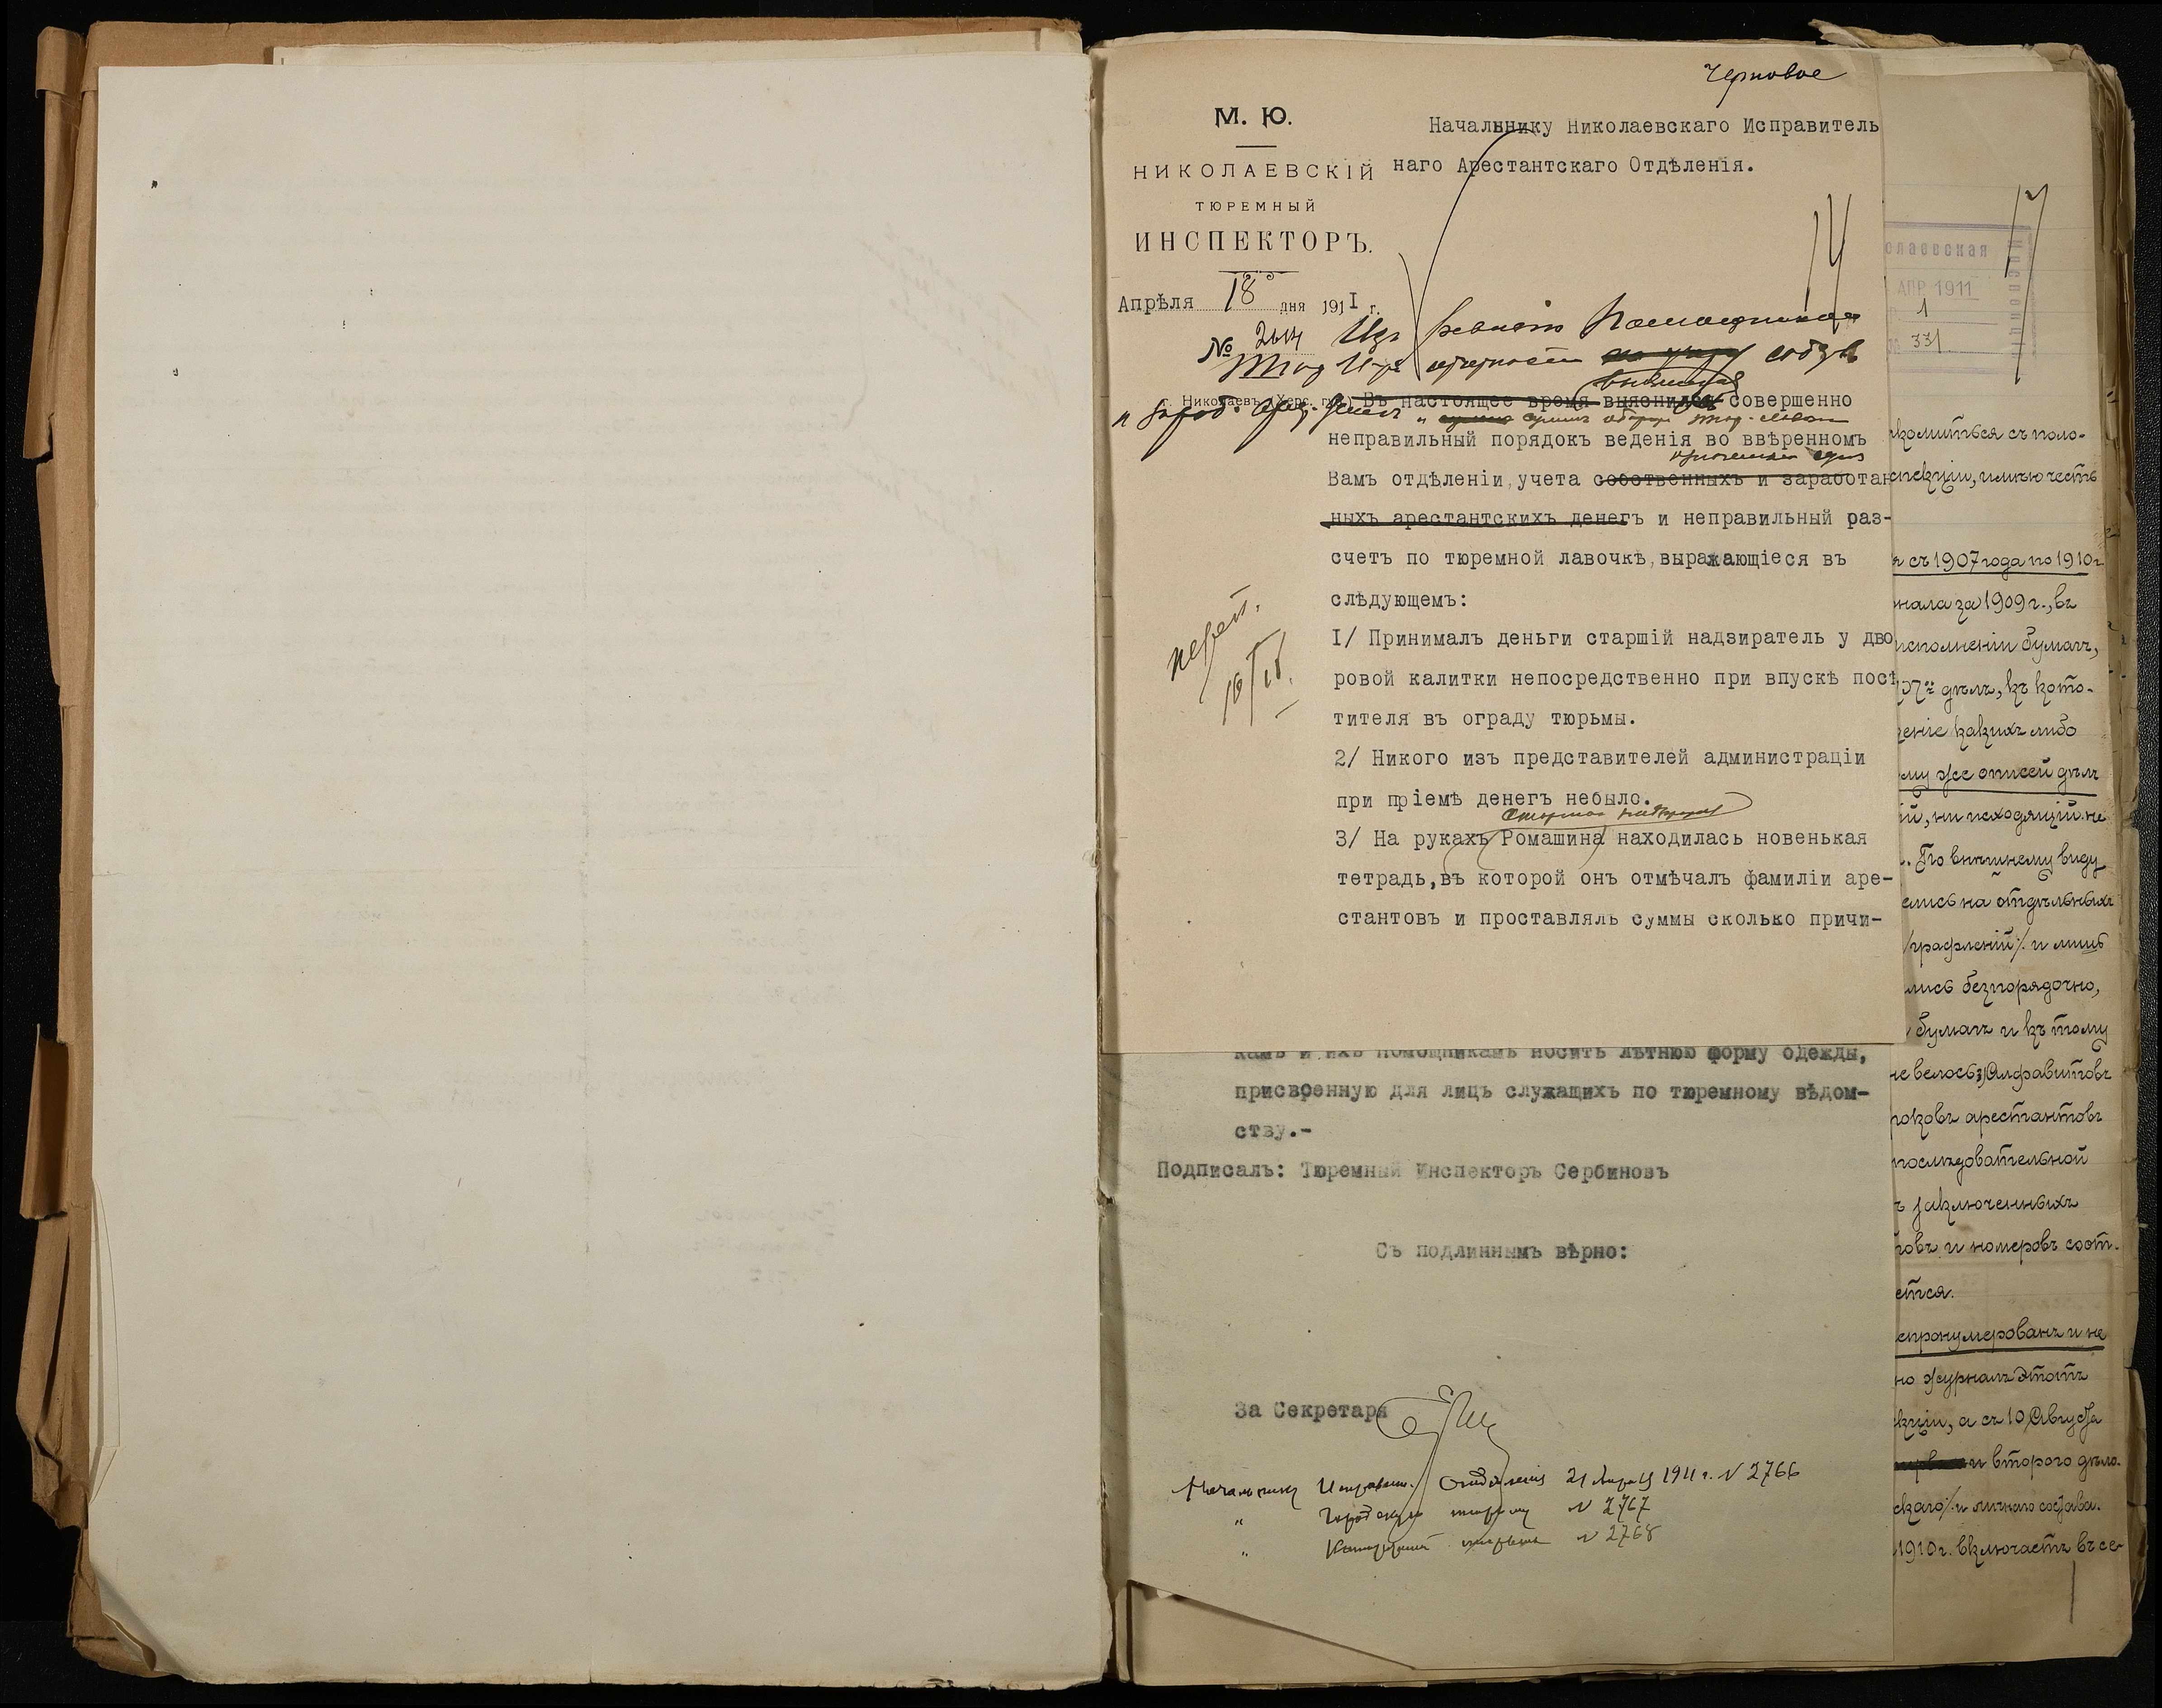 Черновое
М. Ю.
НИКОЛАЕВСКІЙ
ТЮРЕМНЫЙ
ИНСПЕКТОРЪ.
Апрѣля 18 дня 1911 г.
№ 2614
г. Николаевъ (Херс. губ.)
Начальнику Николаевскаго Исправитель
наго Арестантскаго Отдѣленія.
14
Изъ
Въ настоящее время выяснился совершенно
неправильный порядокъ веденія во ввѣренномъ
Вамъ отдѣленіи, учета собственныхъ и заработан
ныхъ арестантскихъ денегъ и неправильный раз-
счетъ по тюремной лавочкѣ, выражающіеся въ
слѣдующемъ:
I/ Принималъ деньги старшій надзиратель у дво
ровой калитки непосредственно при впускѣ посѣ
тителя въ ограду тюрьмы.
2/ Никого изъ представителей администраціи
при пріемѣ денегъ небыло.
3/ На рукахъ Ромашина находилась новенькая
тетрадь, въ которой онъ отмѣчалъ фамиліи аре-
стантовъ и проставлялъ суммы сколько причи-
камъ и ихъ Помощникамъ носить лѣтнюю форму одежды,
присвоенную для лицъ служащихъ по тюремному вѣдом-
ству.-
Подписалъ: Тюремный Инспекторъ Сербиновъ
Съ подлиннымъ вѣрно:
За Секретаря
Начальнику Исправит. Отдѣленія 21 Апрѣля 1911 г. N 2766
" N 2767
" N 2768
17
олаевская
АПР 1911
1
№ 331
комиться съ поло-
спекціи, имѣю честь
съ 1907 года по 1910 г.
нала за 1909 г., въ
исполненіи бумагъ,
дѣлъ, къ кото-
деніе какихъ либо
му же описей дѣлъ
ій, ни исходящій не
. По внѣшнему виду
ались на отдѣльныхъ
/графленій/. и лишь
ались безпорядочно,
бумагъ и къ тому
не велось; Алфавитовъ
роковъ арестантовъ
послѣдовательной
ъ заключенныхъ
товъ и номеровъ соот.
ется.
епронумерованъ и не
но журналъ этотъ
кціи, а съ 10 Августа
и второго дѣло-
скаго/. и личнаго состава.
1910 г. включаетъ въ се-